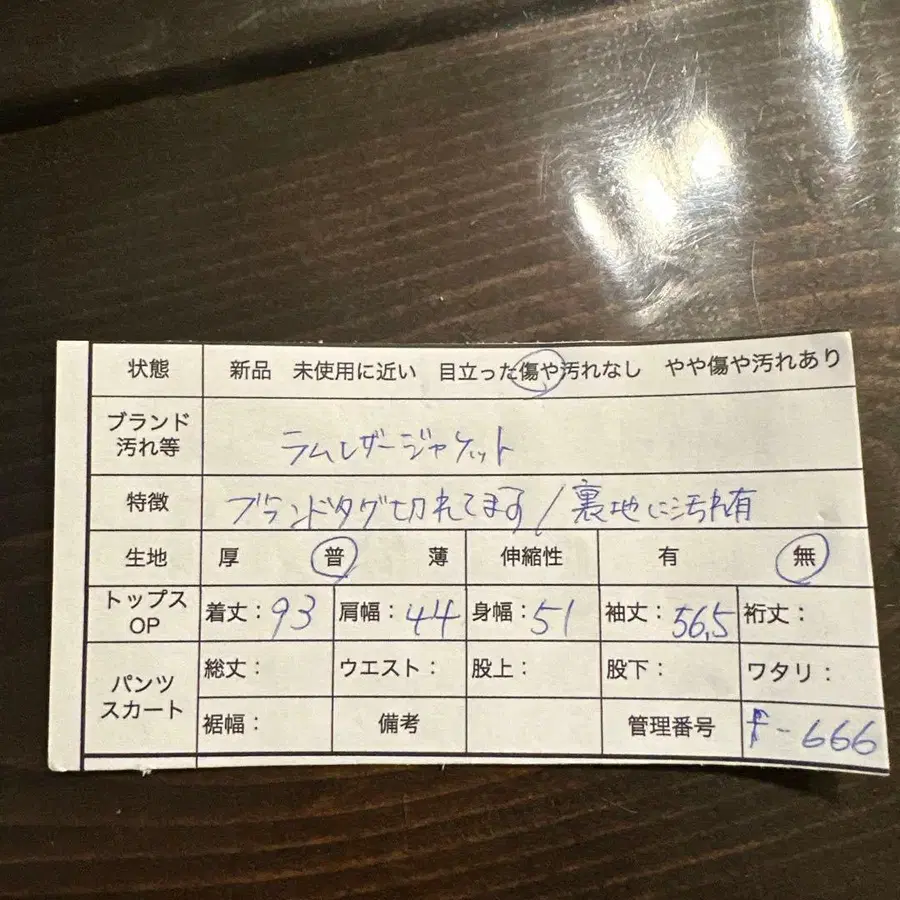 状態 新品 未使用に近い 目立った傷や汚れなし やや傷や汚れあり
ブランド
汚れ等
ラムレザージャケット
特徴 ブランドタグ切れてます/裏地に汚れ有
生地 厚 普 薄 伸縮性 有 無
トップス
OP
着丈:93 肩幅:44 身幅:51 袖丈:56,5 裄丈:
パンツ
スカート
総丈: ウエスト: 股上: 股下: ワタリ:
裾幅: 備考 管理番号 f-666